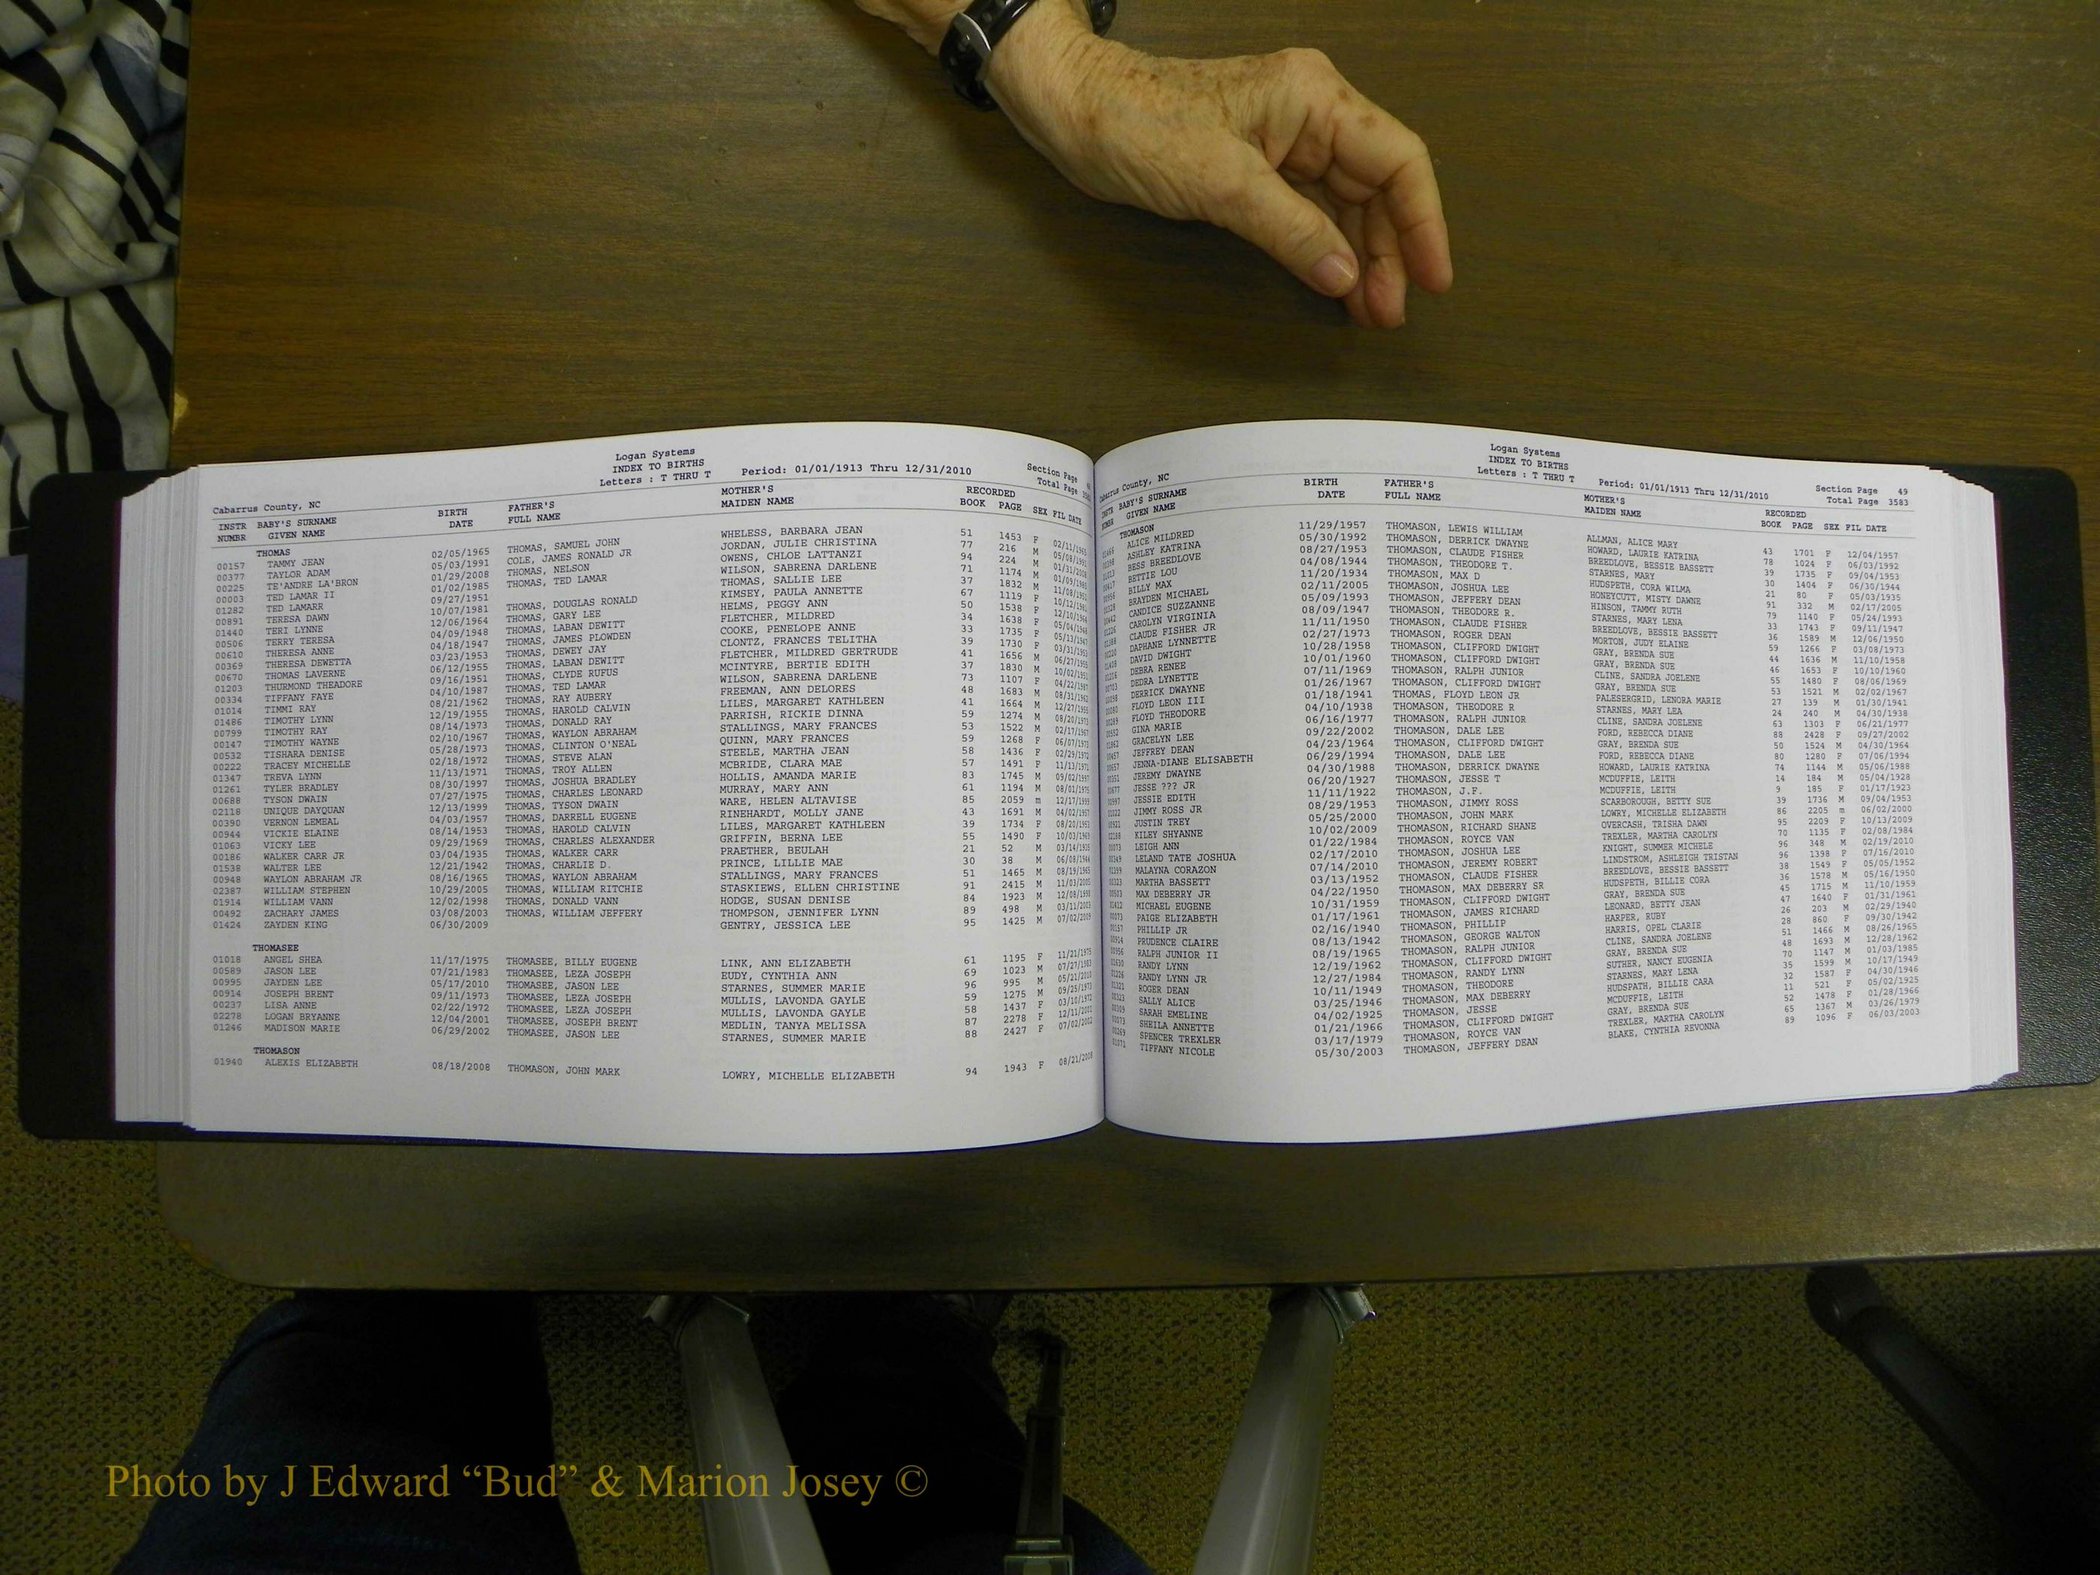 Logan Systems
INDEX TO BIRTHS
Letters : T THRU T Period: 01/01/1913 Thru 12/31/2010
Section Page
Total Page
Cabarrus County, NC
INSTR NUMBR BABY'S SURNAME GIVEN NAME BIRTH DATE FATHER'S FULL NAME MOTHER'S MAIDEN NAME RECORDED BOOK PAGE SEX FIL DATE
THOMAS
00157 TAMMY JEAN 02/05/1965 THOMAS, SAMUEL JOHN WHELESS, BARBARA JEAN 51 1453 F 02/11/1965
00377 TAYLOR ADAM 05/03/1991 COLE, JAMES RONALD JR JORDAN, JULIE CHRISTINA 77 216 M 05/08/1991
00225 TE'ANDRE LA'BRON 01/29/2008 THOMAS, NELSON OWENS, CHLOE LATTANZI 94 224 M 01/31/2008
00003 TED LAMAR II 01/02/1985 THOMAS, TED LAMAR WILSON, SABRENA DARLENE 71 1174 M 01/09/1985
01282 TED LAMARR 09/27/1951 THOMAS, SALLIE LEE 37 1832 M 11/08/1951
00891 TERESA DAWN 10/07/1981 THOMAS, DOUGLAS RONALD KIMSEY, PAULA ANNETTE 67 1119 F 10/12/1981
01440 TERI LYNNE 12/06/1964 THOMAS, GARY LEE HELMS, PEGGY ANN 50 1538 F 12/10/1964
00506 TERRY TERESA 04/09/1948 THOMAS, LABAN DEWITT FLETCHER, MILDRED 34 1638 F 05/04/1948
00610 THERESA ANNE 04/18/1947 THOMAS, JAMES PLOWDEN COOKE, PENELOPE ANNE 33 1735 F 05/13/1947
00369 THERESA DEWETTA 03/23/1953 THOMAS, DEWEY JAY CLONTZ, FRANCES TELITHA 39 1730 F 03/31/1953
00670 THOMAS LAVERNE 06/12/1955 THOMAS, LABAN DEWITT FLETCHER, MILDRED GERTRUDE 41 1656 M 06/27/1955
01203 THURMOND THEADORE 09/16/1951 THOMAS, CLYDE RUFUS MCINTYRE, BERTIE EDITH 37 1830 M 10/02/1951
00334 TIFFANY FAYE 04/10/1987 THOMAS, TED LAMAR WILSON, SABRENA DARLENE 73 1107 F 04/22/1987
01014 TIMMI RAY 08/21/1962 THOMAS, RAY AUBERY FREEMAN, ANN DELORES 48 1683 M 08/31/1962
01486 TIMOTHY LYNN 12/19/1955 THOMAS, HAROLD CALVIN LILES, MARGARET KATHLEEN 41 1664 M 12/27/1955
00799 TIMOTHY RAY 08/14/1973 THOMAS, DONALD RAY PARRISH, RICKIE DINNA 59 1274 M 08/20/1973
00147 TIMOTHY WAYNE 02/10/1967 THOMAS, WAYLON ABRAHAM STALLINGS, MARY FRANCES 53 1522 M 02/17/1967
00532 TISHARA DENISE 05/28/1973 THOMAS, CLINTON O'NEAL QUINN, MARY FRANCES 59 1268 F 06/07/1973
00222 TRACEY MICHELLE 02/18/1972 THOMAS, STEVE ALAN STEELE, MARTHA JEAN 58 1436 F 02/29/1972
01347 TREVA LYNN 11/13/1971 THOMAS, TROY ALLEN MCBRIDE, CLARA MAE 57 1491 F
01261 TYLER BRADLEY 08/30/1997 THOMAS, JOSHUA BRADLEY HOLLIS, AMANDA MARIE 83 1745 M 09/02/1997
00688 TYSON DWAIN 07/27/1975 THOMAS, CHARLES LEONARD MURRAY, MARY ANN 61 1194 M 08/01/1975
02118 UNIQUE DAYQUAN 12/13/1999 THOMAS, TYSON DWAIN WARE, HELEN ALTAVISE 85 2059 m 12/17/1999
00390 VERNON LEMEAL 04/03/1957 THOMAS, DARRELL EUGENE RINEHARDT, MOLLY JANE 43 1691 M
00944 VICKIE ELAINE 08/14/1953 THOMAS, HAROLD CALVIN LILES, MARGARET KATHLEEN 39 1734 F 08/20/1953
01063 VICKY LEE 09/29/1969 THOMAS, CHARLES ALEXANDER GRIFFIN, BERNA LEE 55 1490 F 10/03/1969
00186 WALKER CARR JR 03/04/1935 THOMAS, WALKER CARR PRAETHER, BEULAH 21 52 M 03/14/1935
01538 WALTER LEE 12/21/1942 THOMAS, CHARLIE D. PRINCE, LILLIE MAE 30 38 M 06/08/1944
00948 WAYLON ABRAHAM JR 08/16/1965 THOMAS, WAYLON ABRAHAM STALLINGS, MARY FRANCES 51 1465 M 08/19/1965
02387 WILLIAM STEPHEN 10/29/2005 THOMAS, WILLIAM RITCHIE STASKIEWS, ELLEN CHRISTINE 91 2415 M 11/03/2005
01914 WILLIAM VANN 12/02/1998 THOMAS, DONALD VANN HODGE, SUSAN DENISE 84 1923 M 12/08/1998
00492 ZACHARY JAMES 03/08/2003 THOMAS, WILLIAM JEFFERY THOMPSON, JENNIFER LYNN 89 498 M 03/11/2003
01424 ZAYDEN KING 06/30/2009 GENTRY, JESSICA LEE 95 1425 M 07/02/2009
THOMASEE
01018 ANGEL SHEA 11/17/1975 THOMASEE, BILLY EUGENE LINK, ANN ELIZABETH 61 1195 F 11/21/1975
00589 JASON LEE 07/21/1983 THOMASEE, LEZA JOSEPH EUDY, CYNTHIA ANN 69 1023 M 07/27/1983
00995 JAYDEN LEE 05/17/2010 THOMASEE, JASON LEE STARNES, SUMMER MARIE 96 995 M 05/21/2010
00914 JOSEPH BRENT 09/11/1973 THOMASEE, LEZA JOSEPH MULLIS, LAVONDA GAYLE 59 1275 M 09/25/1973
00237 LISA ANNE 02/22/1972 THOMASEE, LEZA JOSEPH MULLIS, LAVONDA GAYLE 58 1437 F 03/10/1972
02278 LOGAN BRYANNE 12/04/2001 THOMASEE, JOSEPH BRENT MEDLIN, TANYA MELISSA 87 2278 F 12/11/2001
01246 MADISON MARIE 06/29/2002 THOMASEE, JASON LEE STARNES, SUMMER MARIE 88 2427 F 07/02/2002
THOMASON
01940 ALEXIS ELIZABETH 08/18/2008 THOMASON, JOHN MARK LOWRY, MICHELLE ELIZABETH 94 1943 F 08/21/2008
Logan Systems
INDEX TO BIRTHS
Letters : T THRU T Period: 01/01/1913 Thru 12/31/2010
Section Page 49
Total Page 3583
Cabarrus County, NC
INSTR NUMBR BABY'S SURNAME GIVEN NAME BIRTH DATE FATHER'S FULL NAME MOTHER'S MAIDEN NAME RECORDED BOOK PAGE SEX FIL DATE
THOMASON
ALICE MILDRED 11/29/1957 THOMASON, LEWIS WILLIAM ALLMAN, ALICE MARY 43 1701 F 12/04/1957
ASHLEY KATRINA 05/30/1992 THOMASON, DERRICK DWAYNE HOWARD, LAURIE KATRINA 78 1024 F 06/03/1992
BESS BREEDLOVE 08/27/1953 THOMASON, CLAUDE FISHER BREEDLOVE, BESSIE BASSETT 39 1735 F 09/04/1953
BETTIE LOU 04/08/1944 THOMASON, THEODORE T. STARNES, MARY 30 1404 F 06/30/1944
BILLY MAX 11/20/1934 THOMASON, MAX D HUDSPETH, CORA WILMA 21 80 F 05/03/1935
BRAYDEN MICHAEL 02/11/2005 THOMASON, JOSHUA LEE HONEYCUTT, MISTY DAWNE 91 332 M 02/17/2005
CANDICE SUZZANNE 05/09/1993 THOMASON, JEFFERY DEAN HINSON, TAMMY RUTH 79 1140 F 05/24/1993
CAROLYN VIRGINIA 08/09/1947 THOMASON, THEODORE R. STARNES, MARY LENA 33 1743 F 09/11/1947
CLAUDE FISHER JR 11/11/1950 THOMASON, CLAUDE FISHER BREEDLOVE, BESSIE BASSETT 36 1589 M 12/06/1950
DAPHANE LYNNETTE 02/27/1973 THOMASON, ROGER DEAN MORTON, JUDY ELAINE 59 1266 F 03/08/1973
DAVID DWIGHT 10/28/1958 THOMASON, CLIFFORD DWIGHT GRAY, BRENDA SUE 44 1636 M 11/10/1958
DEBRA RENEE 10/01/1960 THOMASON, CLIFFORD DWIGHT GRAY, BRENDA SUE 46 1653 F 10/10/1960
DEDRA LYNETTE 07/11/1969 THOMASON, RALPH JUNIOR CLINE, SANDRA JOELENE 55 1480 F 08/06/1969
DERRICK DWAYNE 01/26/1967 THOMASON, CLIFFORD DWIGHT GRAY, BRENDA SUE 53 1521 M 02/02/1967
FLOYD LEON III 01/18/1941 THOMAS, FLOYD LEON JR PALESERGRID, LENORA MARIE 27 139 M 01/30/1941
FLOYD THEODORE 04/10/1938 THOMASON, THEODORE R STARNES, MARY LEA 24 240 M 04/30/1938
GINA MARIE 06/16/1977 THOMASON, RALPH JUNIOR CLINE, SANDRA JOELENE 63 1303 F 06/21/1977
GRACELYN LEE 09/22/2002 THOMASON, DALE LEE FORD, REBECCA DIANE 88 2428 F 09/27/2002
JEFFREY DEAN 04/23/1964 THOMASON, CLIFFORD DWIGHT GRAY, BRENDA SUE 50 1524 M 04/30/1964
JENNA-DIANE ELISABETH 06/29/1994 THOMASON, DALE LEE FORD, REBECCA DIANE 80 1280 F 07/06/1994
JEREMY DWAYNE 04/30/1988 THOMASON, DERRICK DWAYNE HOWARD, LAURIE KATRINA 74 1144 M 05/06/1988
JESSE ??? JR 06/20/1927 THOMASON, JESSE T MCDUFFIE, LEITH 14 184 M 05/04/1928
JESSIE EDITH 11/11/1922 THOMASON, J.F. MCDUFFIE, LEITH 9 185 F 01/17/1923
JIMMY ROSS JR 08/29/1953 THOMASON, JIMMY ROSS SCARBOROUGH, BETTY SUE 39 1736 M 09/04/1953
JUSTIN TREY 05/25/2000 THOMASON, JOHN MARK LOWRY, MICHELLE ELIZABETH 86 2205 m 06/02/2000
KILEY SHYANNE 10/02/2009 THOMASON, RICHARD SHANE OVERCASH, TRISHA DAWN 95 2209 F 10/13/2009
LEIGH ANN 01/22/1984 THOMASON, ROYCE VAN TREXLER, MARTHA CAROLYN 70 1135 F 02/08/1984
LELAND TATE JOSHUA 02/17/2010 THOMASON, JOSHUA LEE KNIGHT, SUMMER MICHELE 96 348 M 02/19/2010
MALAYNA CORAZON 07/14/2010 THOMASON, JEREMY ROBERT LINDSTROM, ASHLEIGH TRISTAN 96 1398 F 07/16/2010
MARTHA BASSETT 03/13/1952 THOMASON, CLAUDE FISHER BREEDLOVE, BESSIE BASSETT 38 1549 F 05/05/1952
MAX DEBERRY JR 04/22/1950 THOMASON, MAX DEBERRY SR HUDSPETH, BILLIE CORA 36 1578 M 05/16/1950
MICHAEL EUGENE 10/31/1959 THOMASON, CLIFFORD DWIGHT GRAY, BRENDA SUE 45 1715 M 11/10/1959
PAIGE ELIZABETH 01/17/1961 THOMASON, JAMES RICHARD LEONARD, BETTY JEAN 47 1640 F 01/31/1961
PHILLIP JR 02/16/1940 THOMASON, PHILLIP HARPER, RUBY 26 203 M 02/29/1940
PRUDENCE CLAIRE 08/13/1942 THOMASON, GEORGE WALTON HARRIS, OPEL CLARIE 28 860 F 09/30/1942
RALPH JUNIOR II 08/19/1965 THOMASON, RALPH JUNIOR CLINE, SANDRA JOELENE 51 1466 M 08/26/1965
RANDY LYNN 12/19/1962 THOMASON, CLIFFORD DWIGHT GRAY, BRENDA SUE 48 1693 M 12/28/1962
RANDY LYNN JR 12/27/1984 THOMASON, RANDY LYNN SUTHER, NANCY EUGENIA 70 1147 M 01/03/1985
ROGER DEAN 10/11/1949 THOMASON, THEODORE STARNES, MARY LENA 35 1599 M 10/17/1949
SALLY ALICE 03/25/1946 THOMASON, MAX DEBERRY HUDSPATH, BILLIE CARA 32 1587 F 04/30/1946
SARAH EMELINE 04/02/1925 THOMASON, JESSE MCDUFFIE, LEITH 11 521 F 05/02/1925
SHEILA ANNETTE 01/21/1966 THOMASON, CLIFFORD DWIGHT GRAY, BRENDA SUE 52 1478 F 01/28/1966
SPENCER TREXLER 03/17/1979 THOMASON, ROYCE VAN TREXLER, MARTHA CAROLYN 65 1367 M 03/26/1979
TIFFANY NICOLE 05/30/2003 THOMASON, JEFFERY DEAN BLAKE, CYNTHIA REVONNA 89 1096 F 06/03/2003
Photo by J Edward “Bud” & Marion Josey ©